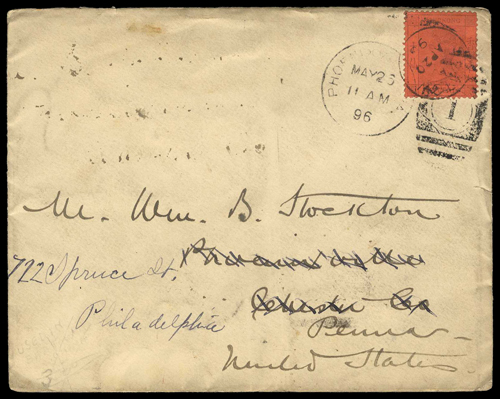 PHOE
MAY 25
11 A M
96
1
Mr. Wm. B. Stockton
722 Spruce St,
Philadelphia
Co
Penna
United States
3